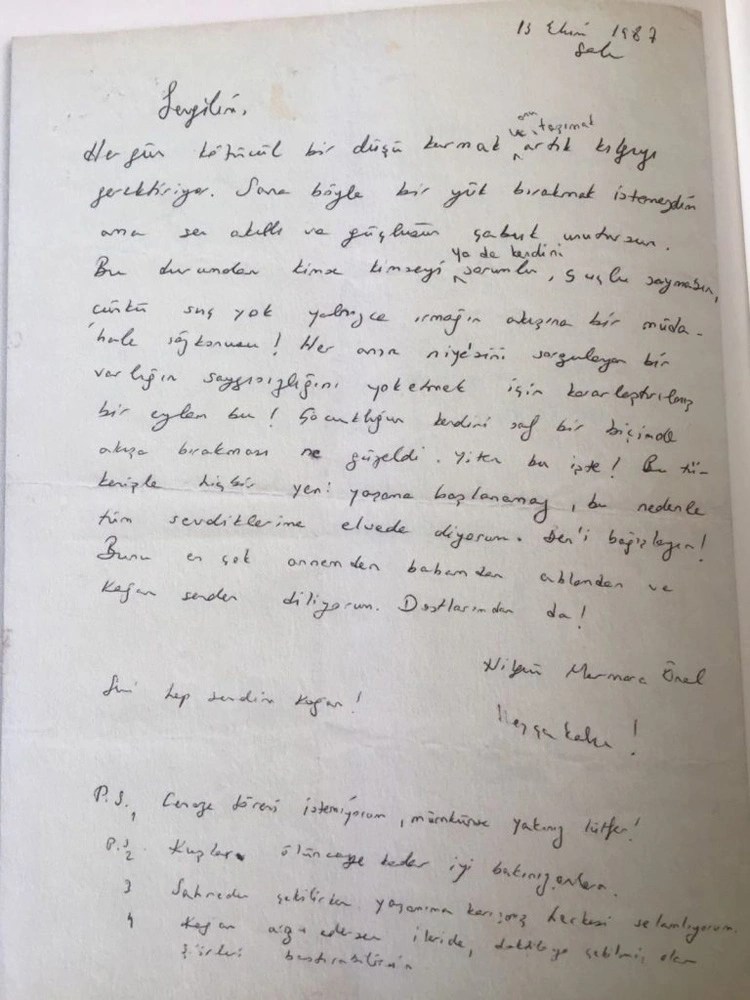 13 Ekim 1987
Salı
Sevgilim,
Her gün kötücül bir düşü kurmak ve onu taşımak artık kılgıyı
gerektiriyor. Sana böyle bir yük bırakmak istemezdim
ama sen akıllı ve güçlüsün çabuk unutursun.
Bu durumdan kimse kimseyi ya da kendini sorumlu, suçlu saymasın,
çünkü suç yok yalnızca ırmağın akışına bir müda-
hale sözkonusu! Her anın niye'sini sorgulayan bir
varlığın saygısızlığını yoketmek için kararlaştırılmış
bir eylem bu! Çocukluğun kendini saf bir biçimde
akışa bırakması ne güzeldi. Yiten bu işte! Bu tü-
kenişle hiçbir yeni yaşama başlanamaz, bu nedenle
tüm sevdiklerime elveda diyorum. Ben'i bağışlayın!
Bunu en çok annemden babamdan ablamdan ve
Kağan senden diliyorum. Dostlarımdan da!
Nilgün Marmara Önal
hep sendin Kağan!
Hoşça kalın!
P.S.1 Cenaze töreni istemiyorum, mümkünse yakınız lütfen!
P.S.2 Kuşlara ölünceye kadar iyi bakınız onlara.
3 Sahneden çekilirken yaşamıma karışmış herkesi selamlıyorum.
4 Kağan arzu edersen ileride, daktiloya çekilmiş olan
şiirleri bastırabilirsin